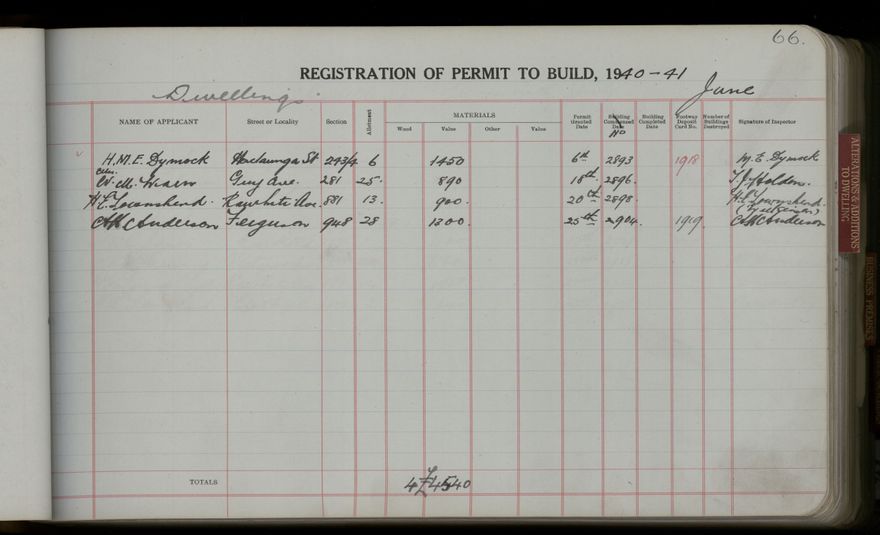 66.
REGISTRATION OF PERMIT TO BUILD, 1940-41
Dwellings June
NAME OF APPLICANT Street or Locality Section Allotment MATERIALS Wood Value Other Value Permit Granted Date Building Commenced Date No Building Completed Date Footway Deposit Card No. Number of Buildings Destroyed Signature of Inspector
H.M.E. Dymock St 293/4 6 1450 6th 2893 1918 M.E. Dymock
W.M. Guy Ave. 281 25. 890 18th 2896. T.J. Holdom.
H.E. Townshend. 881 13. 900. 20th 2898. H.E. Townshend.
Anderson Ferguson 948 28 1300. 25th 2904. 1919. Anderson
TOTALS 4 £4540
ALTERATIONS & ADDITIONS
TO DWELLING
BUSINESS PREMISES